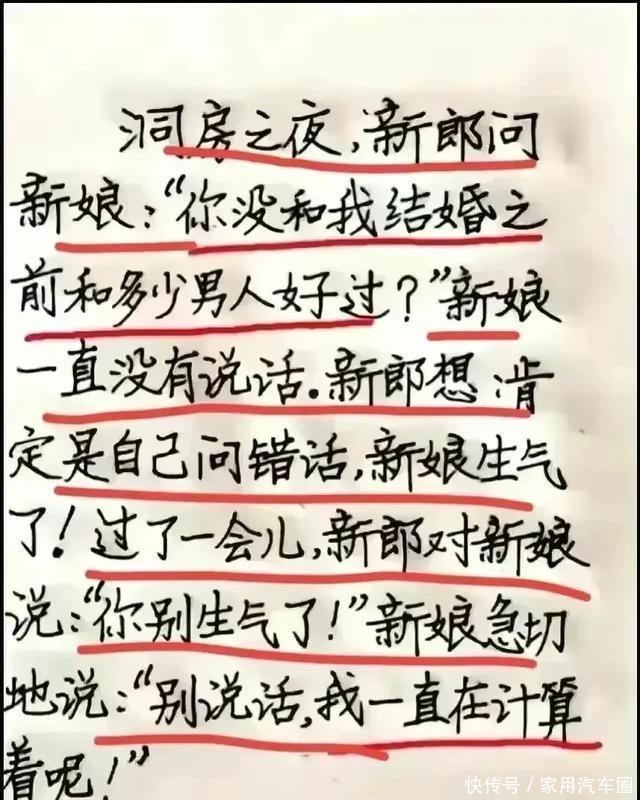 洞房之夜,新郎问
新娘:“你没和我结婚之
前和多少男人好过?”新娘
一直没有说话.新郎想:肯
定是自己问错话,新娘生气
了!过了一会儿,新郎对新娘
说:“你别生气了!”新娘急切
地说:“别说话,我一直在计算
着呢!”
快传号/家用汽车圈